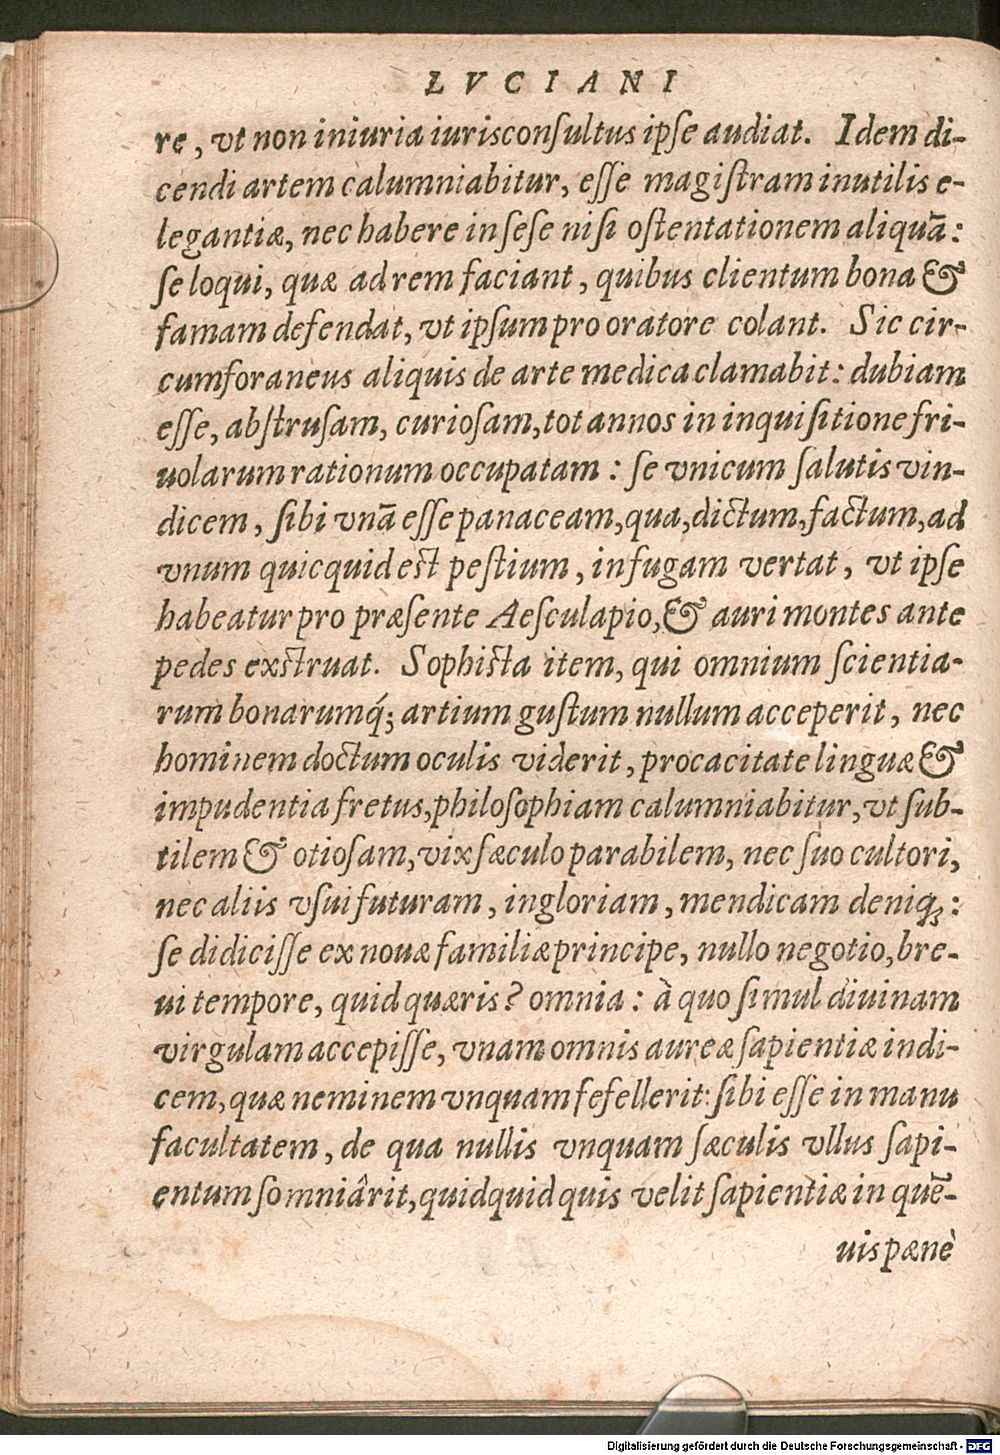 LVCIANI
re, vt non iniuria iurisconſultus ipſe audiat. Idem di-
cendi artem calumniabitur, eſſe magiſtram inutilis e-
legantiæ, nec habere in ſeſe niſi oſtentationem aliquā:
ſe loqui, quæ ad rem faciant, quibus clientum bona &
famam defendat, vt ipſum pro oratore colant. Sic cir-
cumforaneus aliquis de arte medica clamabit: dubiam
eſſe, abſtruſam, curioſam, tot annos in inquiſitione fri-
uolarum rationum occupatam: ſe vnicum ſalutis vin-
dicem, ſibi vnā eſſe panaceam, qua, dictum, factum, ad
vnum quicquid eſt peſtium, in fugam vertat, vt ipſe
habeatur pro præſente Aeſculapio, & auri montes ante
pedes exſtruat. Sophiſta item, qui omnium ſcientia-
rum bonarumq́; artium guſtum nullum acceperit, nec
hominem doctum oculis viderit, procacitate linguæ &
impudentia fretus, philoſophiam calumniabitur, vt ſub-
tilem & otioſam, vix ſæculo parabilem, nec ſuo cultori,
nec aliis vſui futuram, ingloriam, mendicam deniq;:
ſe didiciſſe ex nouæ familiæ principe, nullo negotio, bre-
ui tempore, quid quæris? omnia: à quo ſimul diuinam
virgulam accepiſſe, vnam omnis aureæ ſapientiæ indi-
cem, quæ neminem vnquam fefellerit: ſibi eſſe in manu
facultatem, de qua nullis vnquam ſæculis vllus ſapi-
entum ſomniârit, quidquid quis velit ſapientiæ in quē-
uis pænè
Digitalisierung gefördert durch die Deutsche Forschungsgemeinschaft - DFG